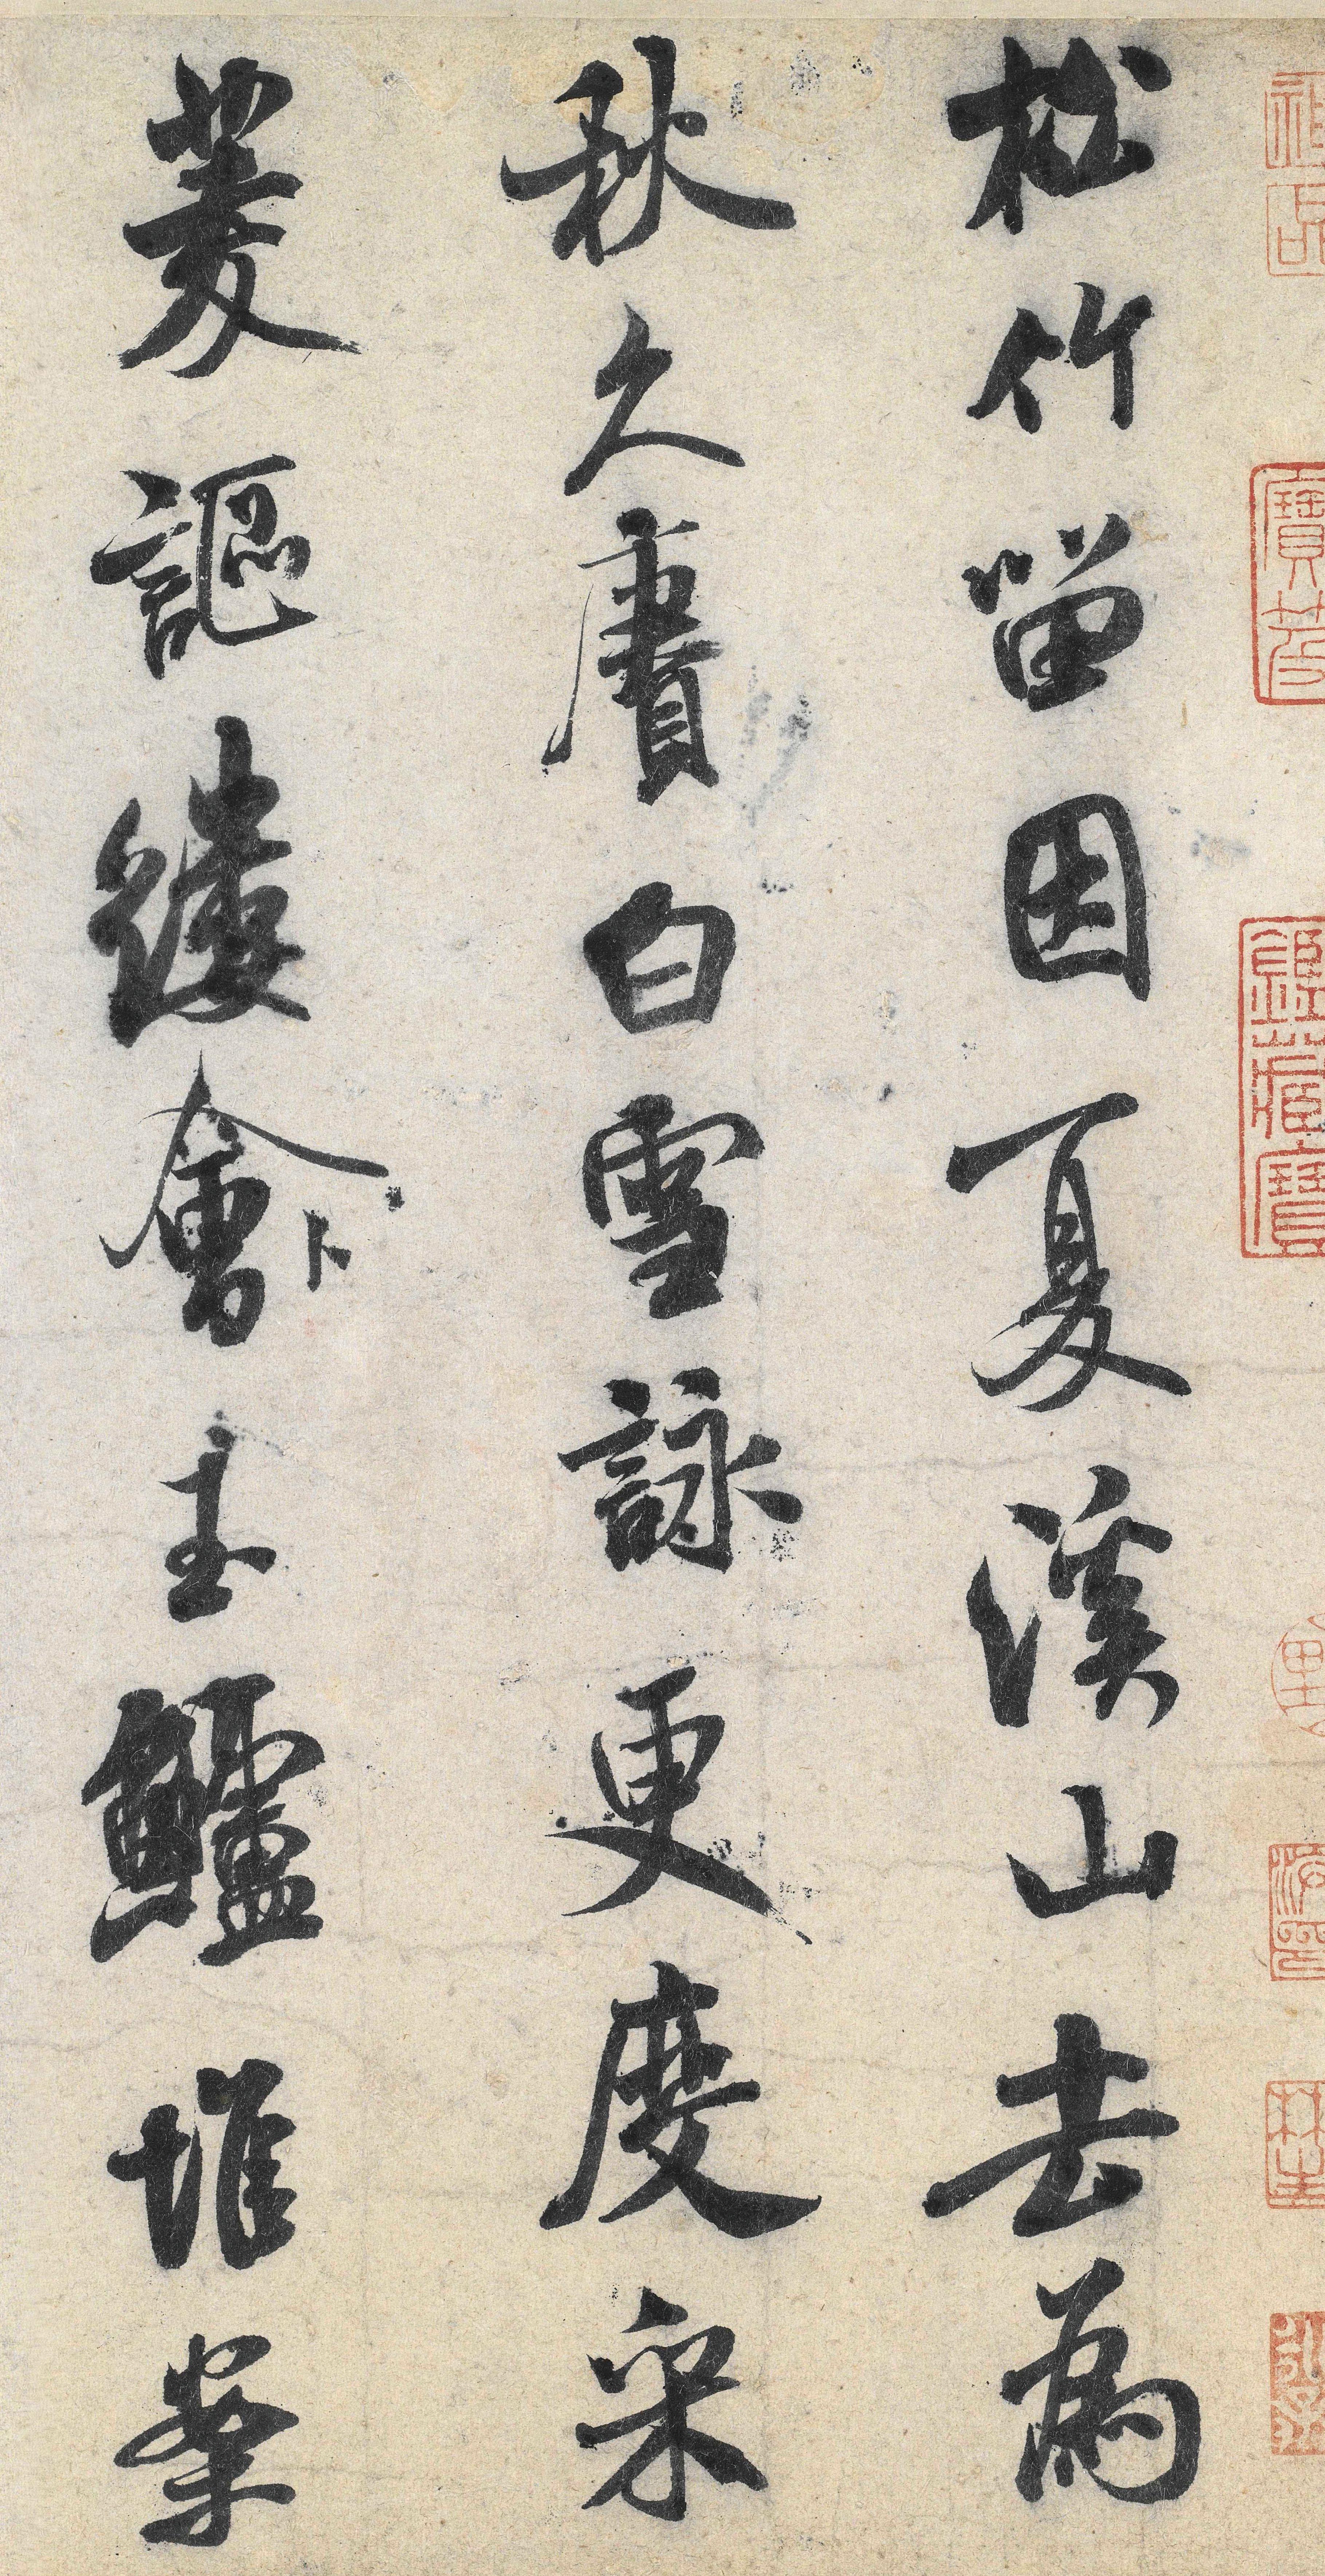 松竹留因夏溪山去為
秋久賡白雪詠更度采
菱謳縷會卜玉鱸堆案